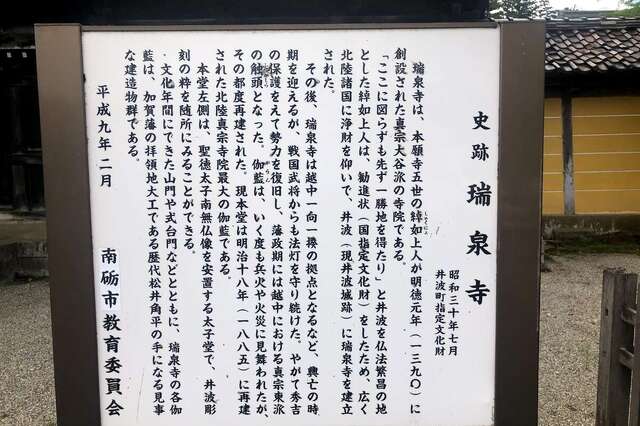 史跡 瑞泉寺
昭和三十年七月
井波町指定文化財
瑞泉寺は、本願寺五世の綽如上人が明徳元年（一三九〇）に
創設された真宗大谷派の寺院である。
「ここに図らずも先ず一勝地を得たり」と井波を仏法繁昌の地
とした綽如上人は、勧進状（国指定文化財）をしたため、広く
北陸諸国に浄財を仰いで、井波（現井波城跡）に瑞泉寺を建立
された。
その後、瑞泉寺は越中一向一揆の拠点となるなど、興亡の時
期を迎えるが、戦国武将からも法灯を守り続けた。やがて秀吉
の保護をえて勢力を復旧し、藩政期には越中における真宗東派
の触頭となった。伽藍は、いく度も兵火や火災に見舞われたが、
その都度再建された。現本堂は明治十八年（一八八五）に再建
された北陸真宗寺院最大の伽藍である。
本堂左側は、聖徳太子南無仏像を安置する太子堂で、井波彫
刻の粋を随所にみることができる。
文化年間にできた山門や式台門などとともに、瑞泉寺の各伽
藍は、加賀藩の拝領地大工である歴代松井角平の手になる見事
な建造物群である。
平成九年二月
南砺市教育委員会